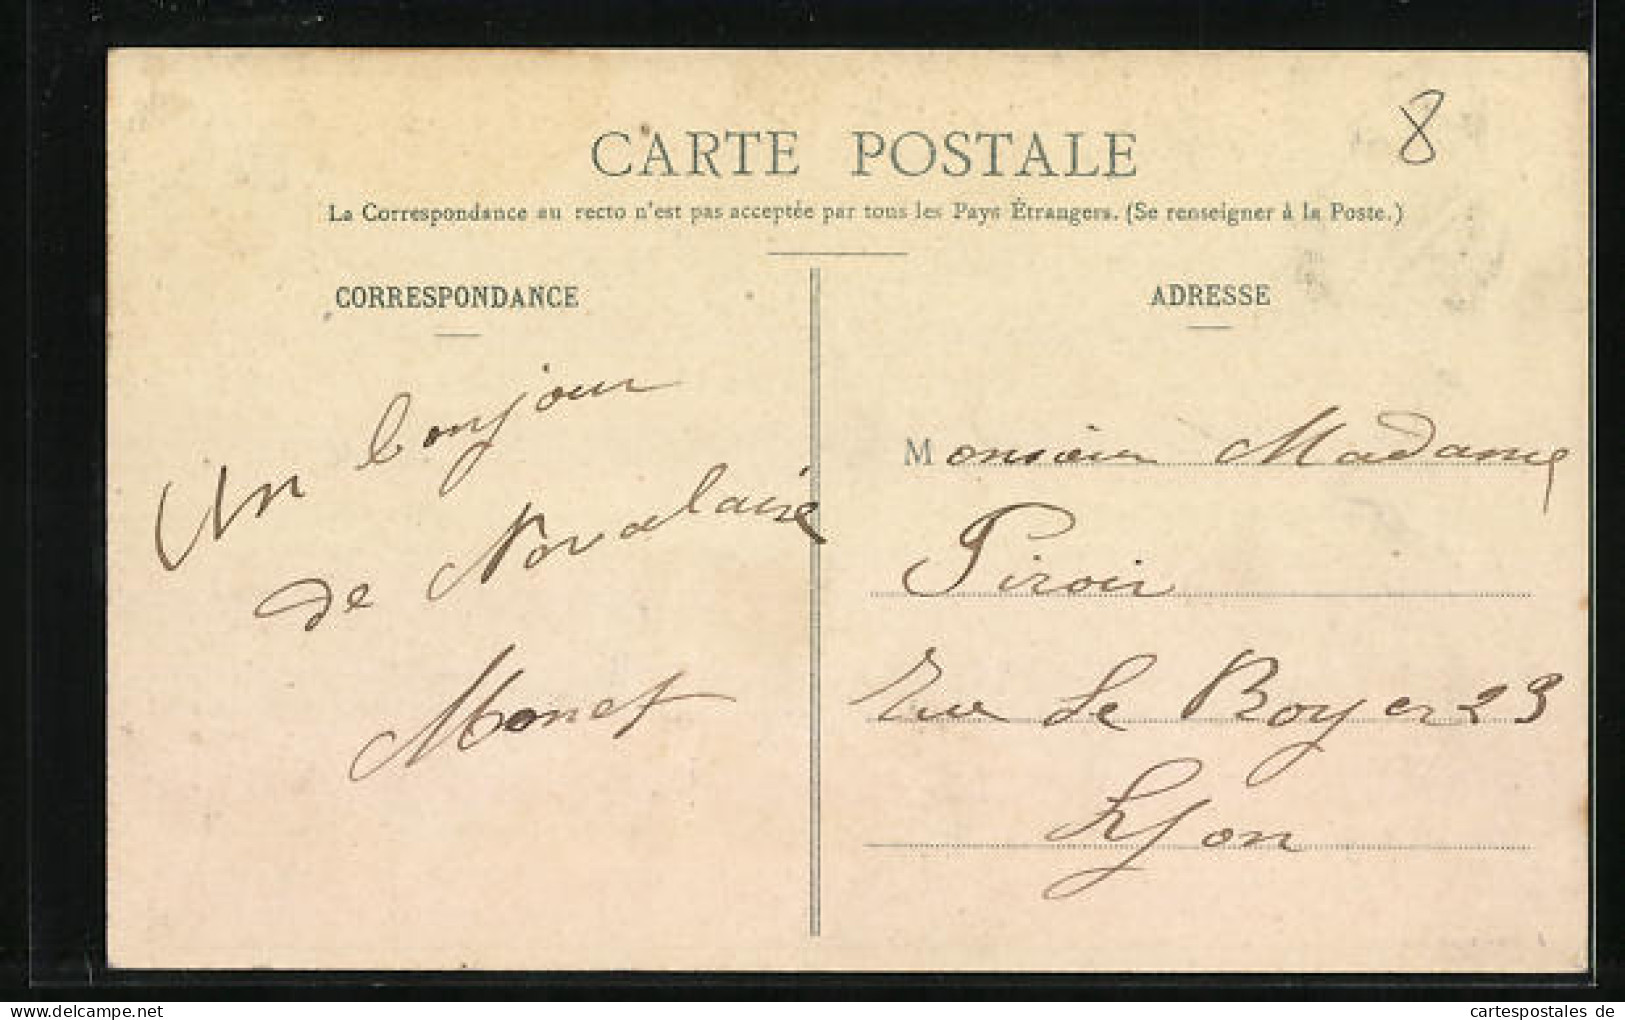 8
CARTE POSTALE
La Correspondance au recto n'est pas acceptée par tous les Pays Étrangers. (Se renseigner à la Poste.)
CORRESPONDANCE
Un bonjour
de Novalaise
Monet
ADRESSE
Monsieur Madame
Piroir
Rue Le Boyer 23
Lyon
cartespostales de